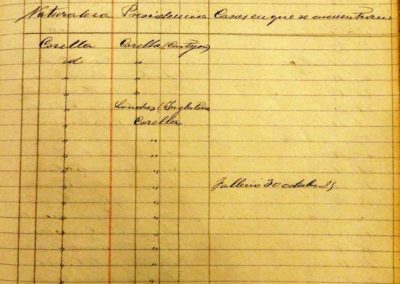 Naturaleza Residencia en que se encuentran
Corella Corella
id "
" "
" "
" Londres (Inglaterra
" Corella
" "
" "
" "
" " Falleció 30 octubre
" "
" "
" "
" "
" "